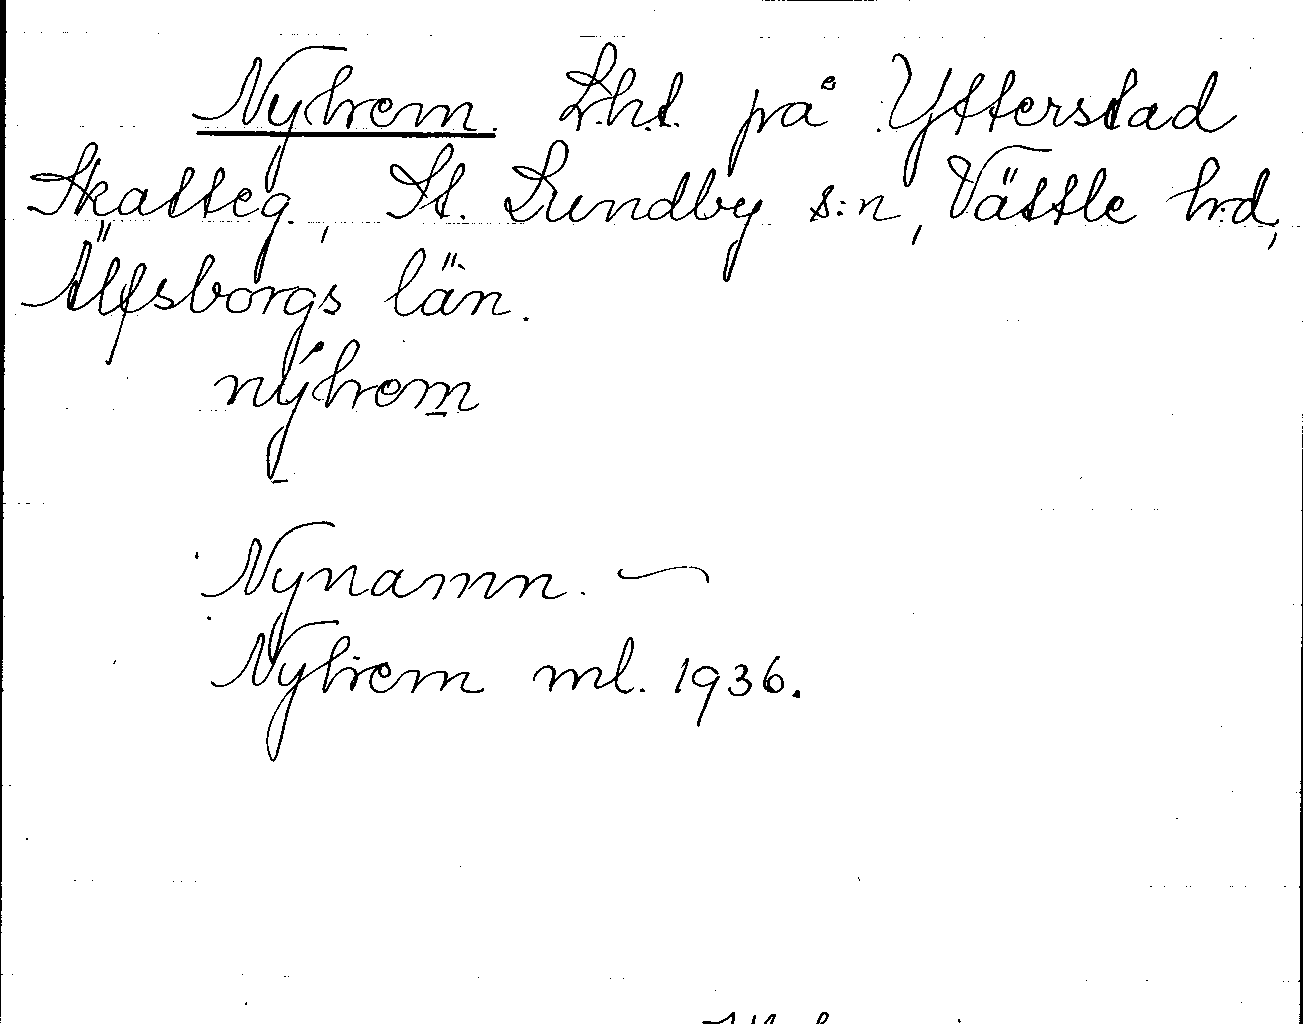 Nyhem. Lht. på Ytterstad
Skatteg., St. Lundby s:n, Vättle hd,
Älfsborgs län.
nýhem
Nynamn. —
Nyhem ml. 1936.